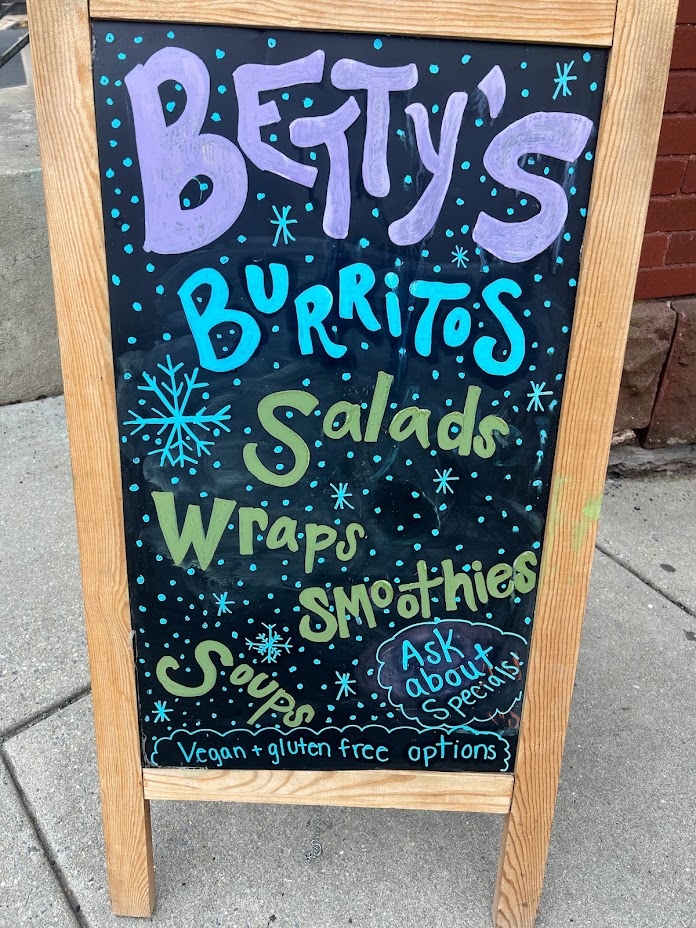 BETTY'S
BURRiTOS
Salads
Wraps
SMoothies
Soups
ASK
about
Specials!
Vegan + gluten free options